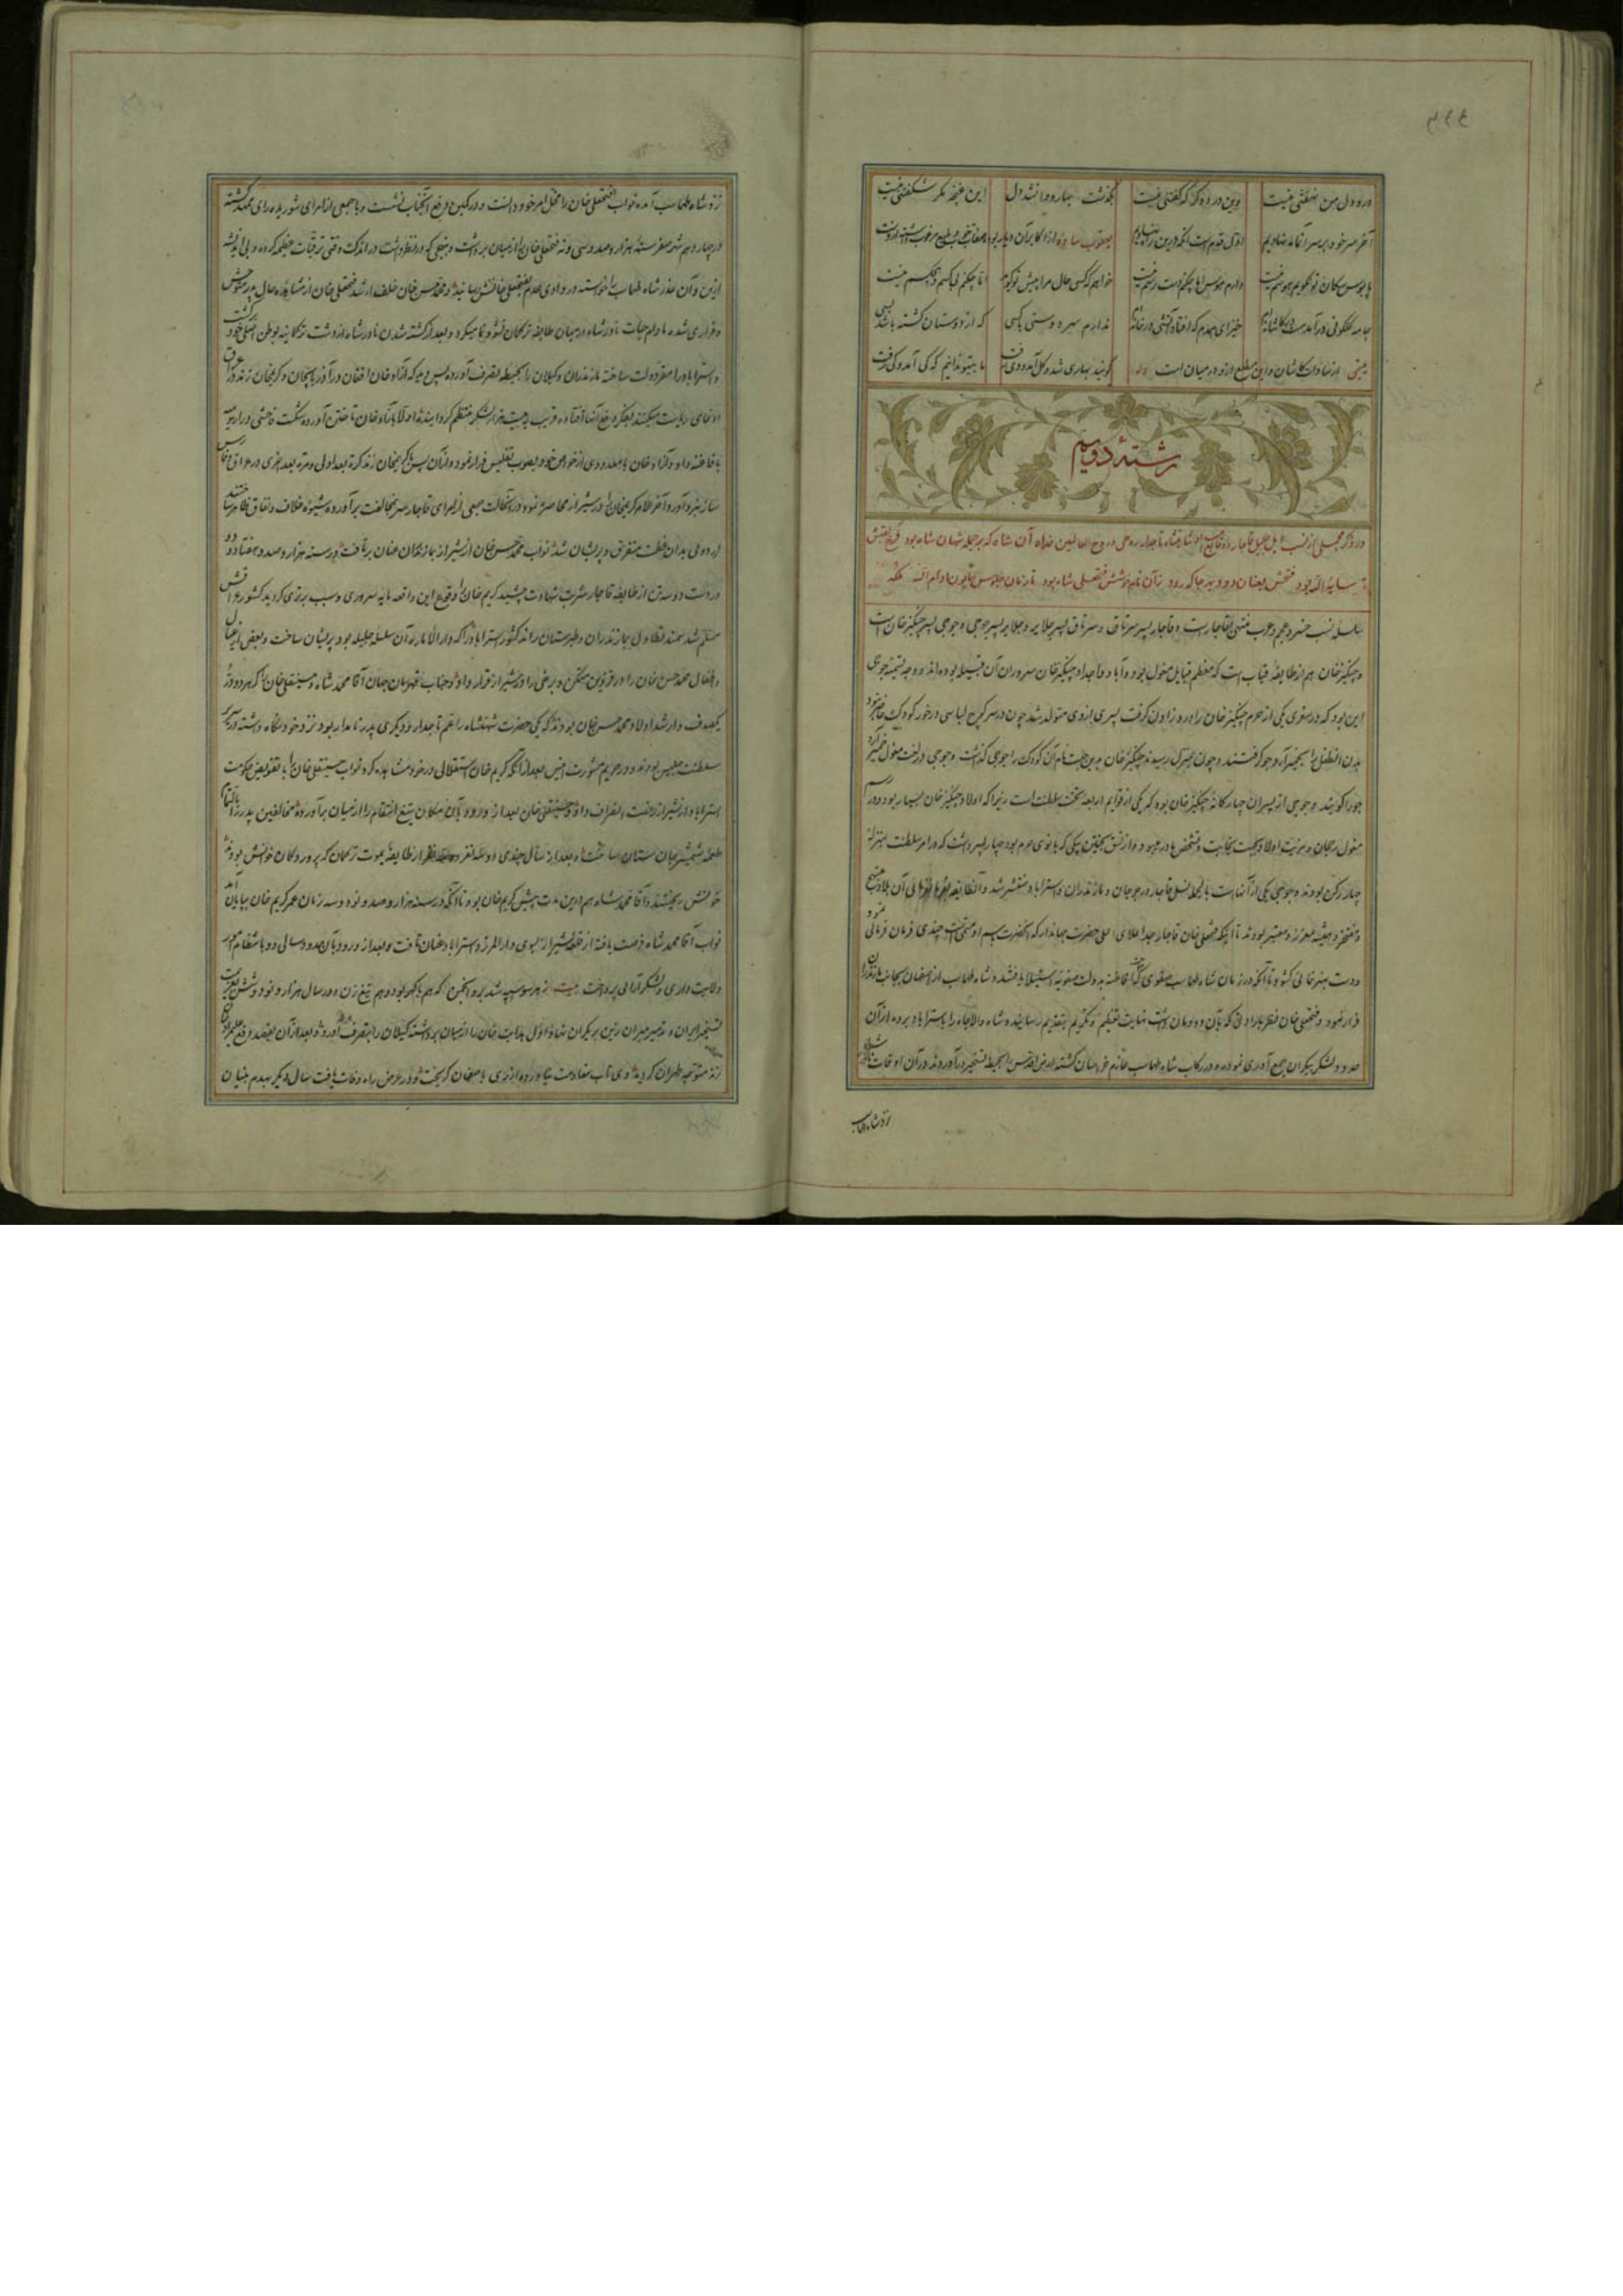 درد دل من نهفتنی نیست وین درد دگر که گفتنی نیست بگذشت بهار و وا نشد دل این غنچه مگر شکفتنی نیست
آخر سر خود بر سر آنخانه نهادیم اول قدم است آنکه درین راه نهادیم یعقوب ساوه از اکابر آن دیار بود
پابوس سگان تو نگویم هوسم نیست دارم هوس اما چکنم دسترسم نیست خواهم که کسی حال مرا پیش تو گوید اما چکنم بی کسم و هیچکسم نیست
جامه گلگونی درآمد مست در کاشانه‌ام خیز ای همدم که افتاد آتشی در خانه‌ام ندارم سر دوستی با کسی که از دوستان کشته باشد بسی
از سادات کاشان و این مطلع ازو در میان است گویند بهاری شد و گل آمد و دی رفت ما بیتو ندانیم که کی آمد و کی رفت
رشته دویم
در ذکر مجملی از نسب ایل جلیل قاجار
سایه اله بود فتحش بعنان دود بهر جا که رود زآن نام خوشش فتحعلی شاه بود تا زمان جلوس همایون ادام الله ملکه
سلسله نسب خسرو عجم و عرب منتهی بقاجار است و قاجار پسر سرتاق و سرتاق پسر جلایر و جلایر پسر جوجی و جوجی پسر چنگیز خان است
و چنگیز خان هم از طایفه قیات است که معظم قبایل مغول بود و آبا و اجداد چنگیز خان سروران آن قبیله بوده‌اند و وجه تسمیه جوجی
این بود که در سفری یکی از حرم چنگیز خان را درد زادن گرفت پسری ازوی متولد شد چون در سر کوچ لباسی در خور کودک حاضر نبود
بدن آنطفل را بخمیر آرد جو گرفتند و چون بمنزل رسیدند چنگیز خان بدین جهت نام آن کودک را جوجی گذاشت و جوجی در لغت مغول خمیر آرد
جو را گویند و جوجی از پسران چهارگانه چنگیز خان بوده که یکی از قوایم اربعه تخت سلطنت است زیرا که اولاد چنگیز خان بسیار بود و در رسم
مغول رجحان و مزیت اولاد بجهت نجابت و تشخص مادر میبود و از تنسق بیجین بیکی که بانوی حرم بود چهار پسر داشت که در امر سلطنت بمنزله
چهار رکن بودند و جوجی یکی از آنهاست بالجمله نسل قاجار در جرجان و مازندران و استراباد منتشر شد
و مفتخر و همیشه معزز و معتبر بودند تا اینکه فتحعلی خان قاجار جد اعلای اعلی حضرت جهاندار که آنحضرت سم اوست چندی فرمان فرمائی
و دست بهنرنمائی گشود تا آنکه در زمان شاه طهماسب صفوی که افاغنه بدولت صفویه استیلا یافتند و شاه طهماسب از اصفهان بجانب مازندران
فرار نمود و فتحعلی خان نظر بارادتی که بآن دودمان داشت نهایت تعظیم و تکریم بتقدیم رسانیده شاه والاجاه را باستراباد برده از آن
حدود لشکر بیکران جمع آوری نموده در رکاب شاه طهماسب عازم خراسان گشته ارض اقدس را بحیطه تسخیر درآوردند در آن اوقات
نزد شاه طهماسب
نزد شاه طهماسب آمده نواب فتحعلی خان را مخل امر خود دانست و در کمین رفع آنجناب نشست و با جمعی از امرای شوریده رای همعهد گشته
در چهاردهم شهر صفر سنه هزار و صد و سی و نه فتحعلی خان را از میان برداشت
ازین و آن عذر شاه طهماسب را خواسته در وادی عدم بفتحعلی خانش رسانید و محمد حسن خان خلف ارشد فتحعلی خان از مشاهده حال پدر متوحش
و فراری شده مادام حیات نادر شاه در میان طایفه ترکمان نشو و نما میکرد و بعد از کشته شدن نادر شاه از دشت ترکمانیه بوطن اصلی خود برگشت
و استراباد را مقر دولت ساخته مازندران و گیلان را بحیطه تصرف آورده پس دید که آزاد خان افغان در آذربایجان و کریمخان زند در عراق
لوای ریاست میکشند بفکر دفع آنها افتاده قریب به بیست هزار لشکر منتظم گردانیده اولا بآزاد خان تاختن آورده شکست فاحشی در ارومیه
بافاغنه داد و آزاد خان با معدودی از خواص خود بصوب تفلیس فرار نمود و از آن پس با کریمخان زند کرة بعد اولی و مرة بعد اخری در عراق و فارس
ساز نبرد آورد و آخر الامر کریمخان را در شیراز محاصره نمود در آنحالت جمعی از امرای قاجار سر بمخالفت برآورده شیوه خلاف و نفاق ظاهر ساختند
اردوئی بدان عظمت متفرق و پریشان شد و نواب محمد حسن خان از شیراز بمازندران عنان برتافت و در سنه هزار و صد و هفتاد و دو
در دست دو سه تن از طایفه قاجار شربت شهادت چشید کریم خان را وقوع این واقعه مایه سروری و سبب برتری گردید کشور عراقش
مسلم شد سمند تطاول بمازندران و طبرستان راند کشور استراباد را که دار الاماره آن سلسله جلیله بود پریشان ساخت و بعض از عیال
و اطفال محمد حسن خان را در قزوین مسکن و برخی را در شیراز قرار داد و جناب قهرمان جهان آقا محمد شاه و حسینقلی خان را که هر دو در
یکصدف و ارشد اولاد محمد حسن خان بودند که یکی حضرت شهنشاه را عم تاجدار و دیگری پدر نامدار بود نزد خود نگاه داشته در سریر
سلطنت جلیس بودند و در حریم مشورت انیس بعد از آنکه کریم خان استقلالی در خود مشاهده کرد نواب حسینقلی خان را بتفویض حکومت
استراباد از شیراز رخصت انصراف داد و حسینقلی خان بعد از ورود بآن مکان تیغ انتقام را از میان برآورده مخالفین پدر را
طعمه شمشیر جان ستان ساخت و بعد از سال چندی از طایفه یموت ترکمان که پرورد گان خوانش بودند
خونش ریختند و آقا محمد شاه هم درین مدت پیش کریم خان بود تا آنکه در سنه هزار و صد و نود و سه زمان عمر کریم خان بپایان آمد
نواب آقا محمد شاه فرصت یافته از قلعه شیراز بسوی دار المرز و استراباد عنان تافت و بعد از ورود بآن حدود سالی دو بانتظام امور
ولایت داری و لشکر آرائی پرداخت بیت ز هر سو سپه شد برو انجمن که هم با گهر بود و هم تیغ زن و در سال هزار و نود و شش
تسخیر ایران و تدبیر میران رزین بر یکران نهاد و اول هدایت خان را از میان برداشته گیلان را بتصرف آورد و بعد از آن بقصد دفع علیمراد خان
زند متوجه طهران گردید و وی تاب مقاومت نیاورده از ری باصفهان گریخت و در عرض راه وفات یافت سال دیگر بهدم بنیان